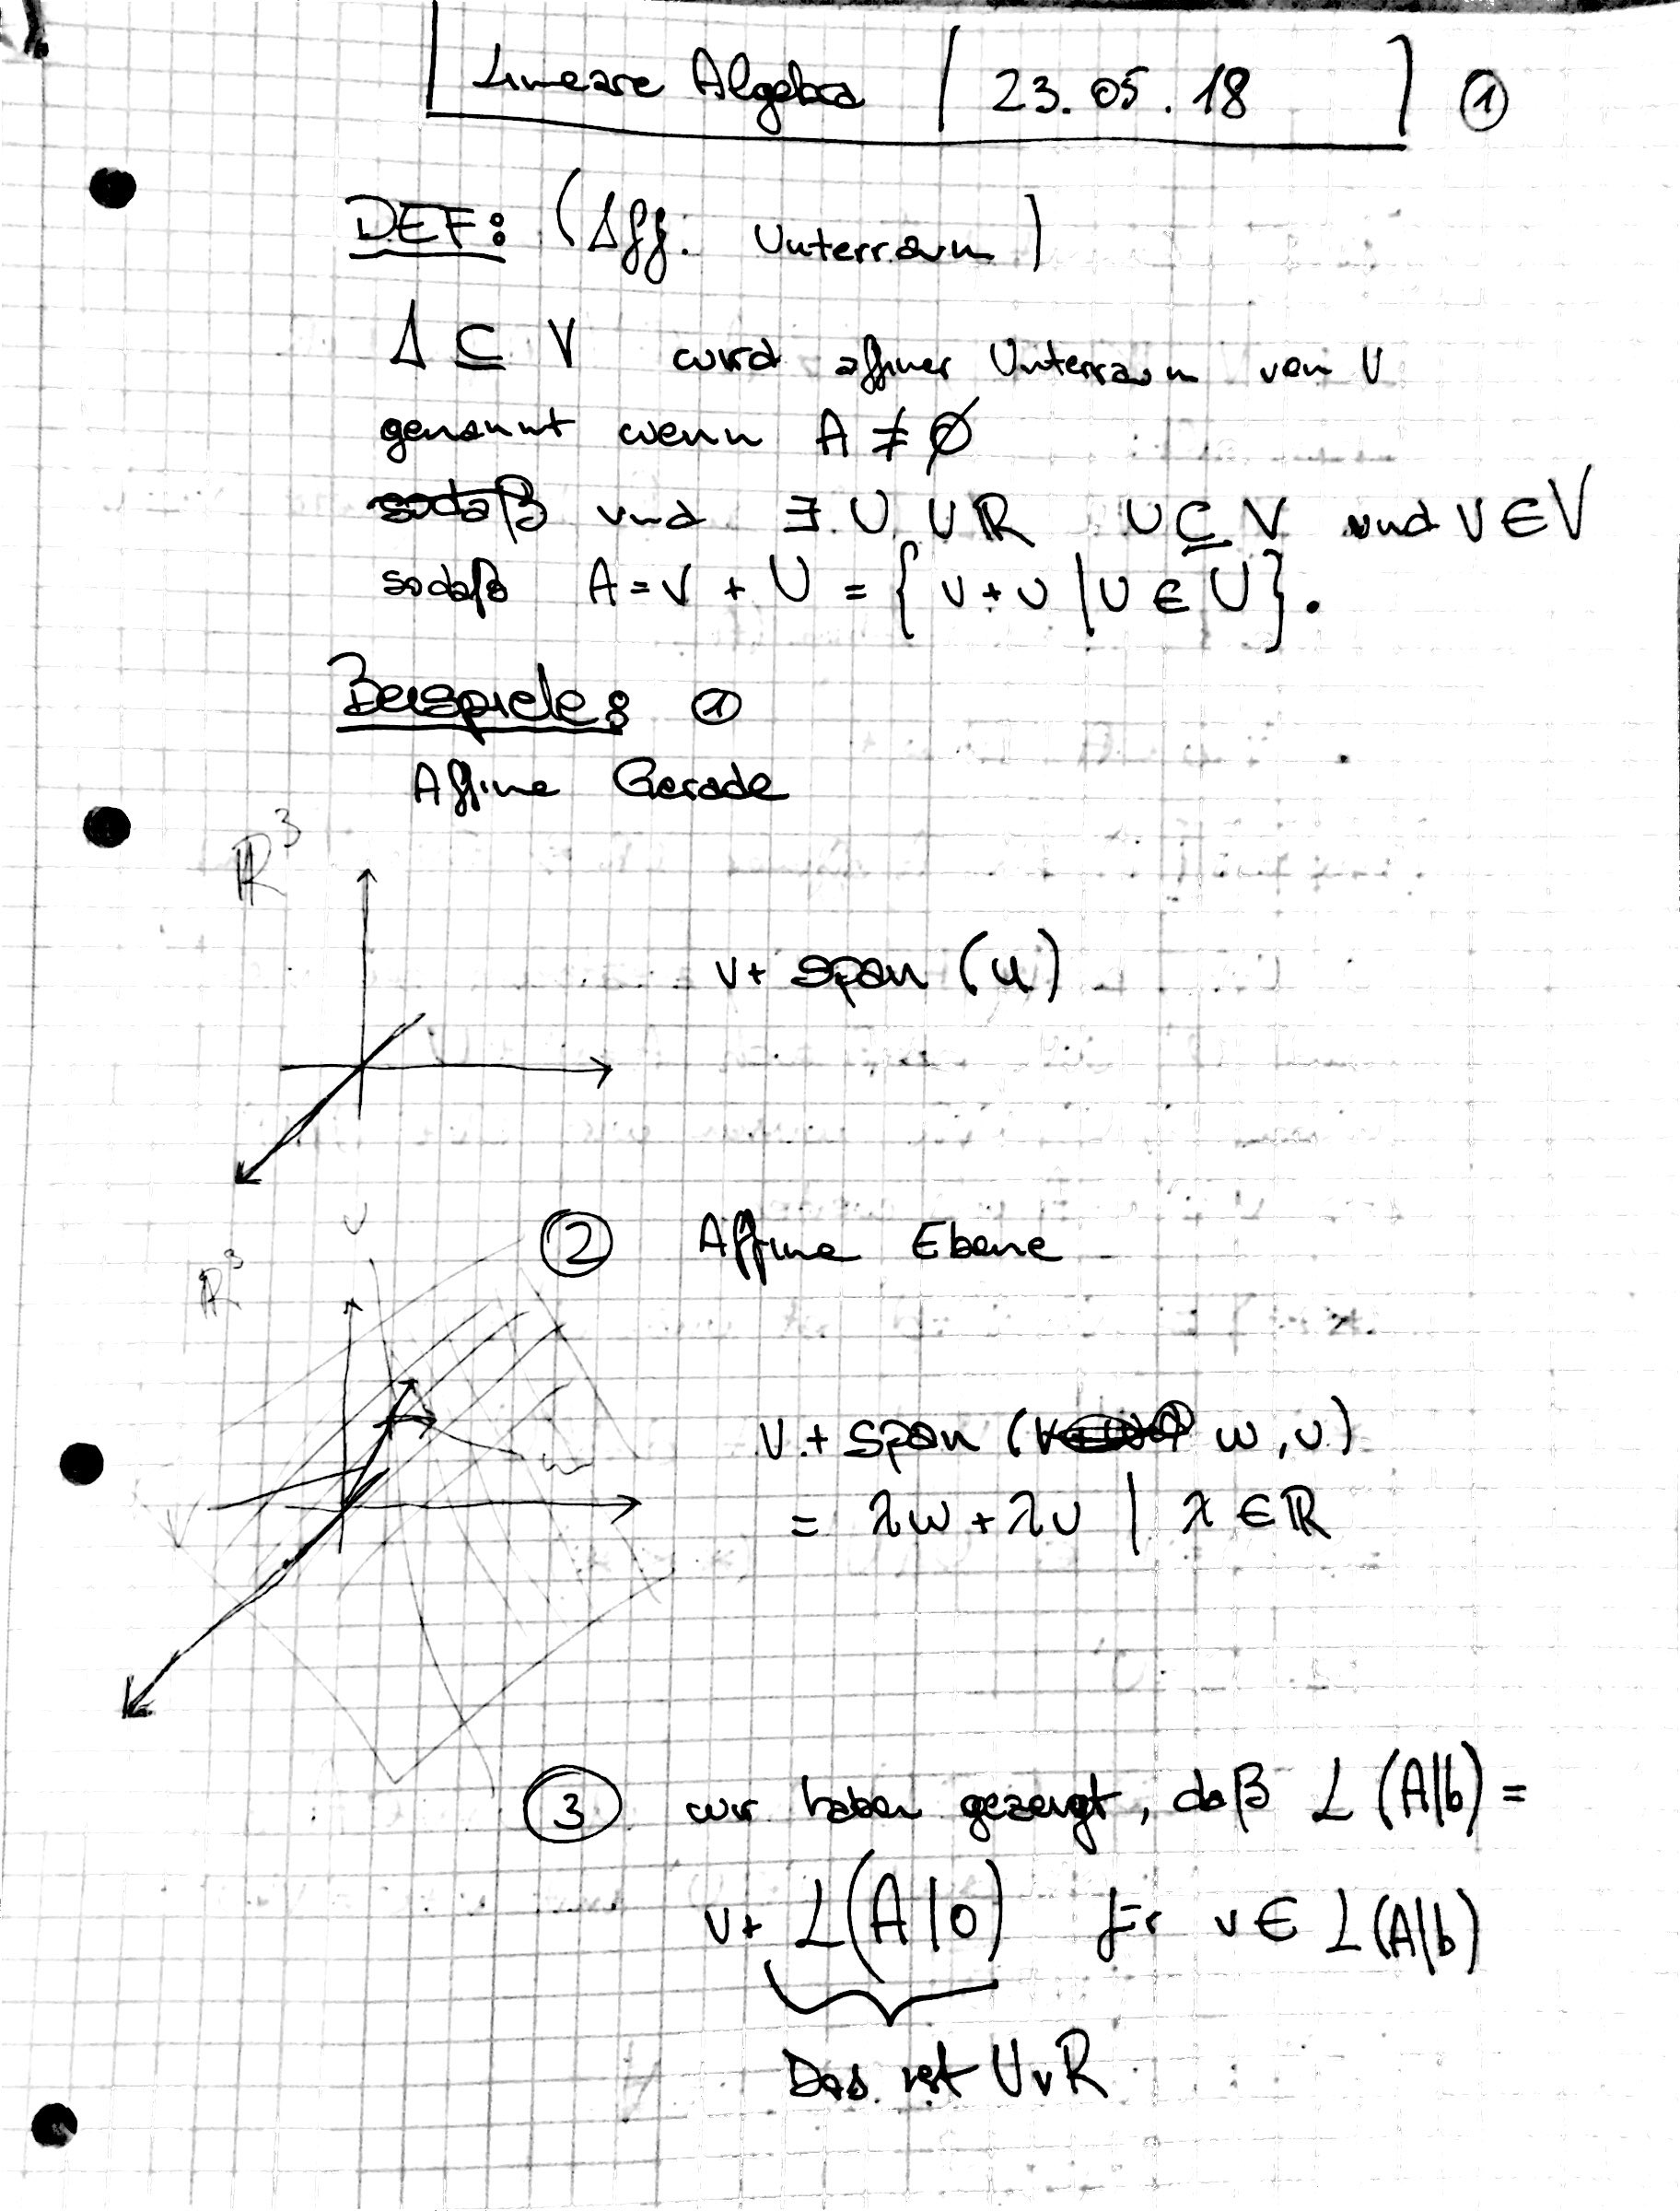 Lineare Algebra | 23.05.18 ①
DEF: (Aff. Unterraum)
A ⊆ V wird affiner Unterraum von V
genannt wenn A ≠ ∅
sodaß und ∃ U UR U ⊆ V und v ∈ V
sodaß A = v + U = { v + u | u ∈ U }.
Beispiele: ①
Affine Gerade
ℝ³
v + span (u)
② Affine Ebene
u
ℝ³
w
v + span ( w, u)
v
= λw + λu | λ ∈ ℝ
③ wir haben gezeigt, daß L (A|b) =
v + L(A|0) für v ∈ L(A|b)
Das ist UvR